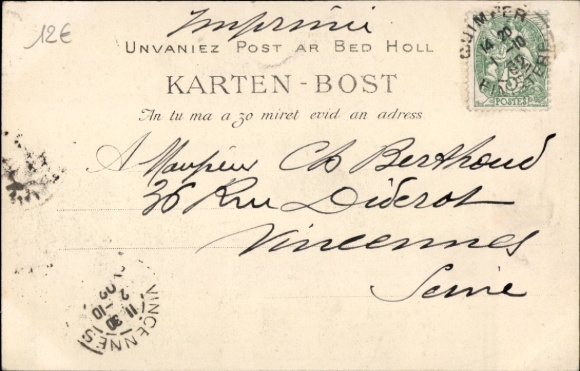 12€
Imprimé
UNVANIEZ POST AR BED HOLL
KARTEN-BOST
An tu ma a zo miret evid an adress
A Monsieur Ch Berthoud
36 Rue Diderot
Vincennes
Seine
QUIMPER
FINISTERE
POSTES
VINCENNES